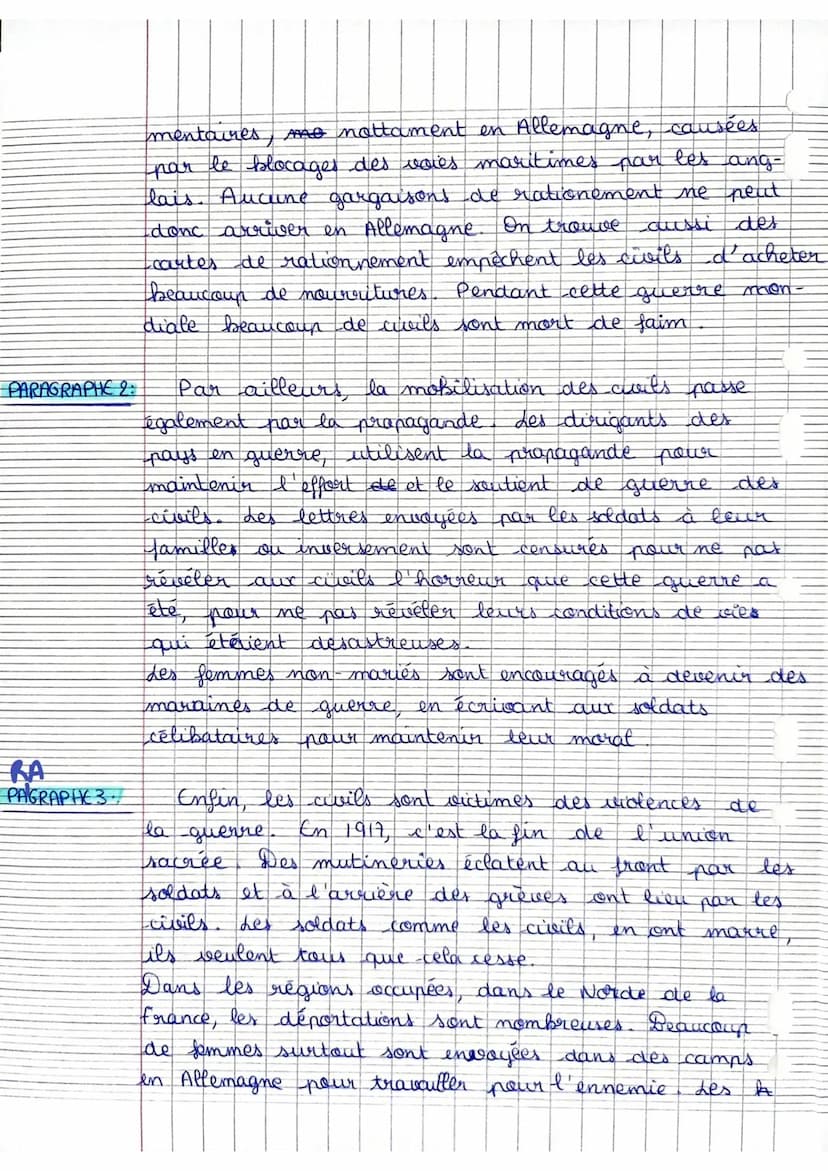 mentaires, me nottament en Allemagne, causées
par le blocages des voies maritimes par les ang-
lais. Aucune gargaisons de rationement ne peut
donc arriver en Allemagne. On trouve aussi des
cartes de rationnement empêchent les civils d'acheter
beaucoup de nourritures. Pendant cette guerre mon-
diale beaucoup de civils sont mort de faim.
PARAGRAPHE 2: Par ailleurs, la mobilisation des civils passe
également par la propagande. Les dirigants des
pays en guerre, utilisent la propagande pour
maintenir l'effort de et le soutient de guerre des
civils. Les lettres envoyées par les soldats à leur
familles ou inversement sont censurés pour ne pas
révéler aux civils l'horreur que cette guerre a
été, pour ne pas révéler leurs conditions de vies
qui étéient désastreuses.
Les femmes non-mariés sont encouragés à devenir des
maraines de guerre, en écrivant aux soldats
célibataires pour maintenir leur moral.
RA
PAGRAPHE 3: Enfin, les civils sont victimes des violences de
la guerre. En 1917, c'est la fin de l'union
sacrée. Des mutineries éclatent au front par les
soldats et à l'arrière des grèves ont lieu par les
civils. Les soldats comme les civils, en ont marre,
ils veulent tous que cela cesse.
Dans les régions occupées, dans le Norde de la
France, les déportations sont nombreuses. Beaucoup
de femmes surtout sont envoyées dans des camps
en Allemagne pour travailler pour l'ennemie. Les